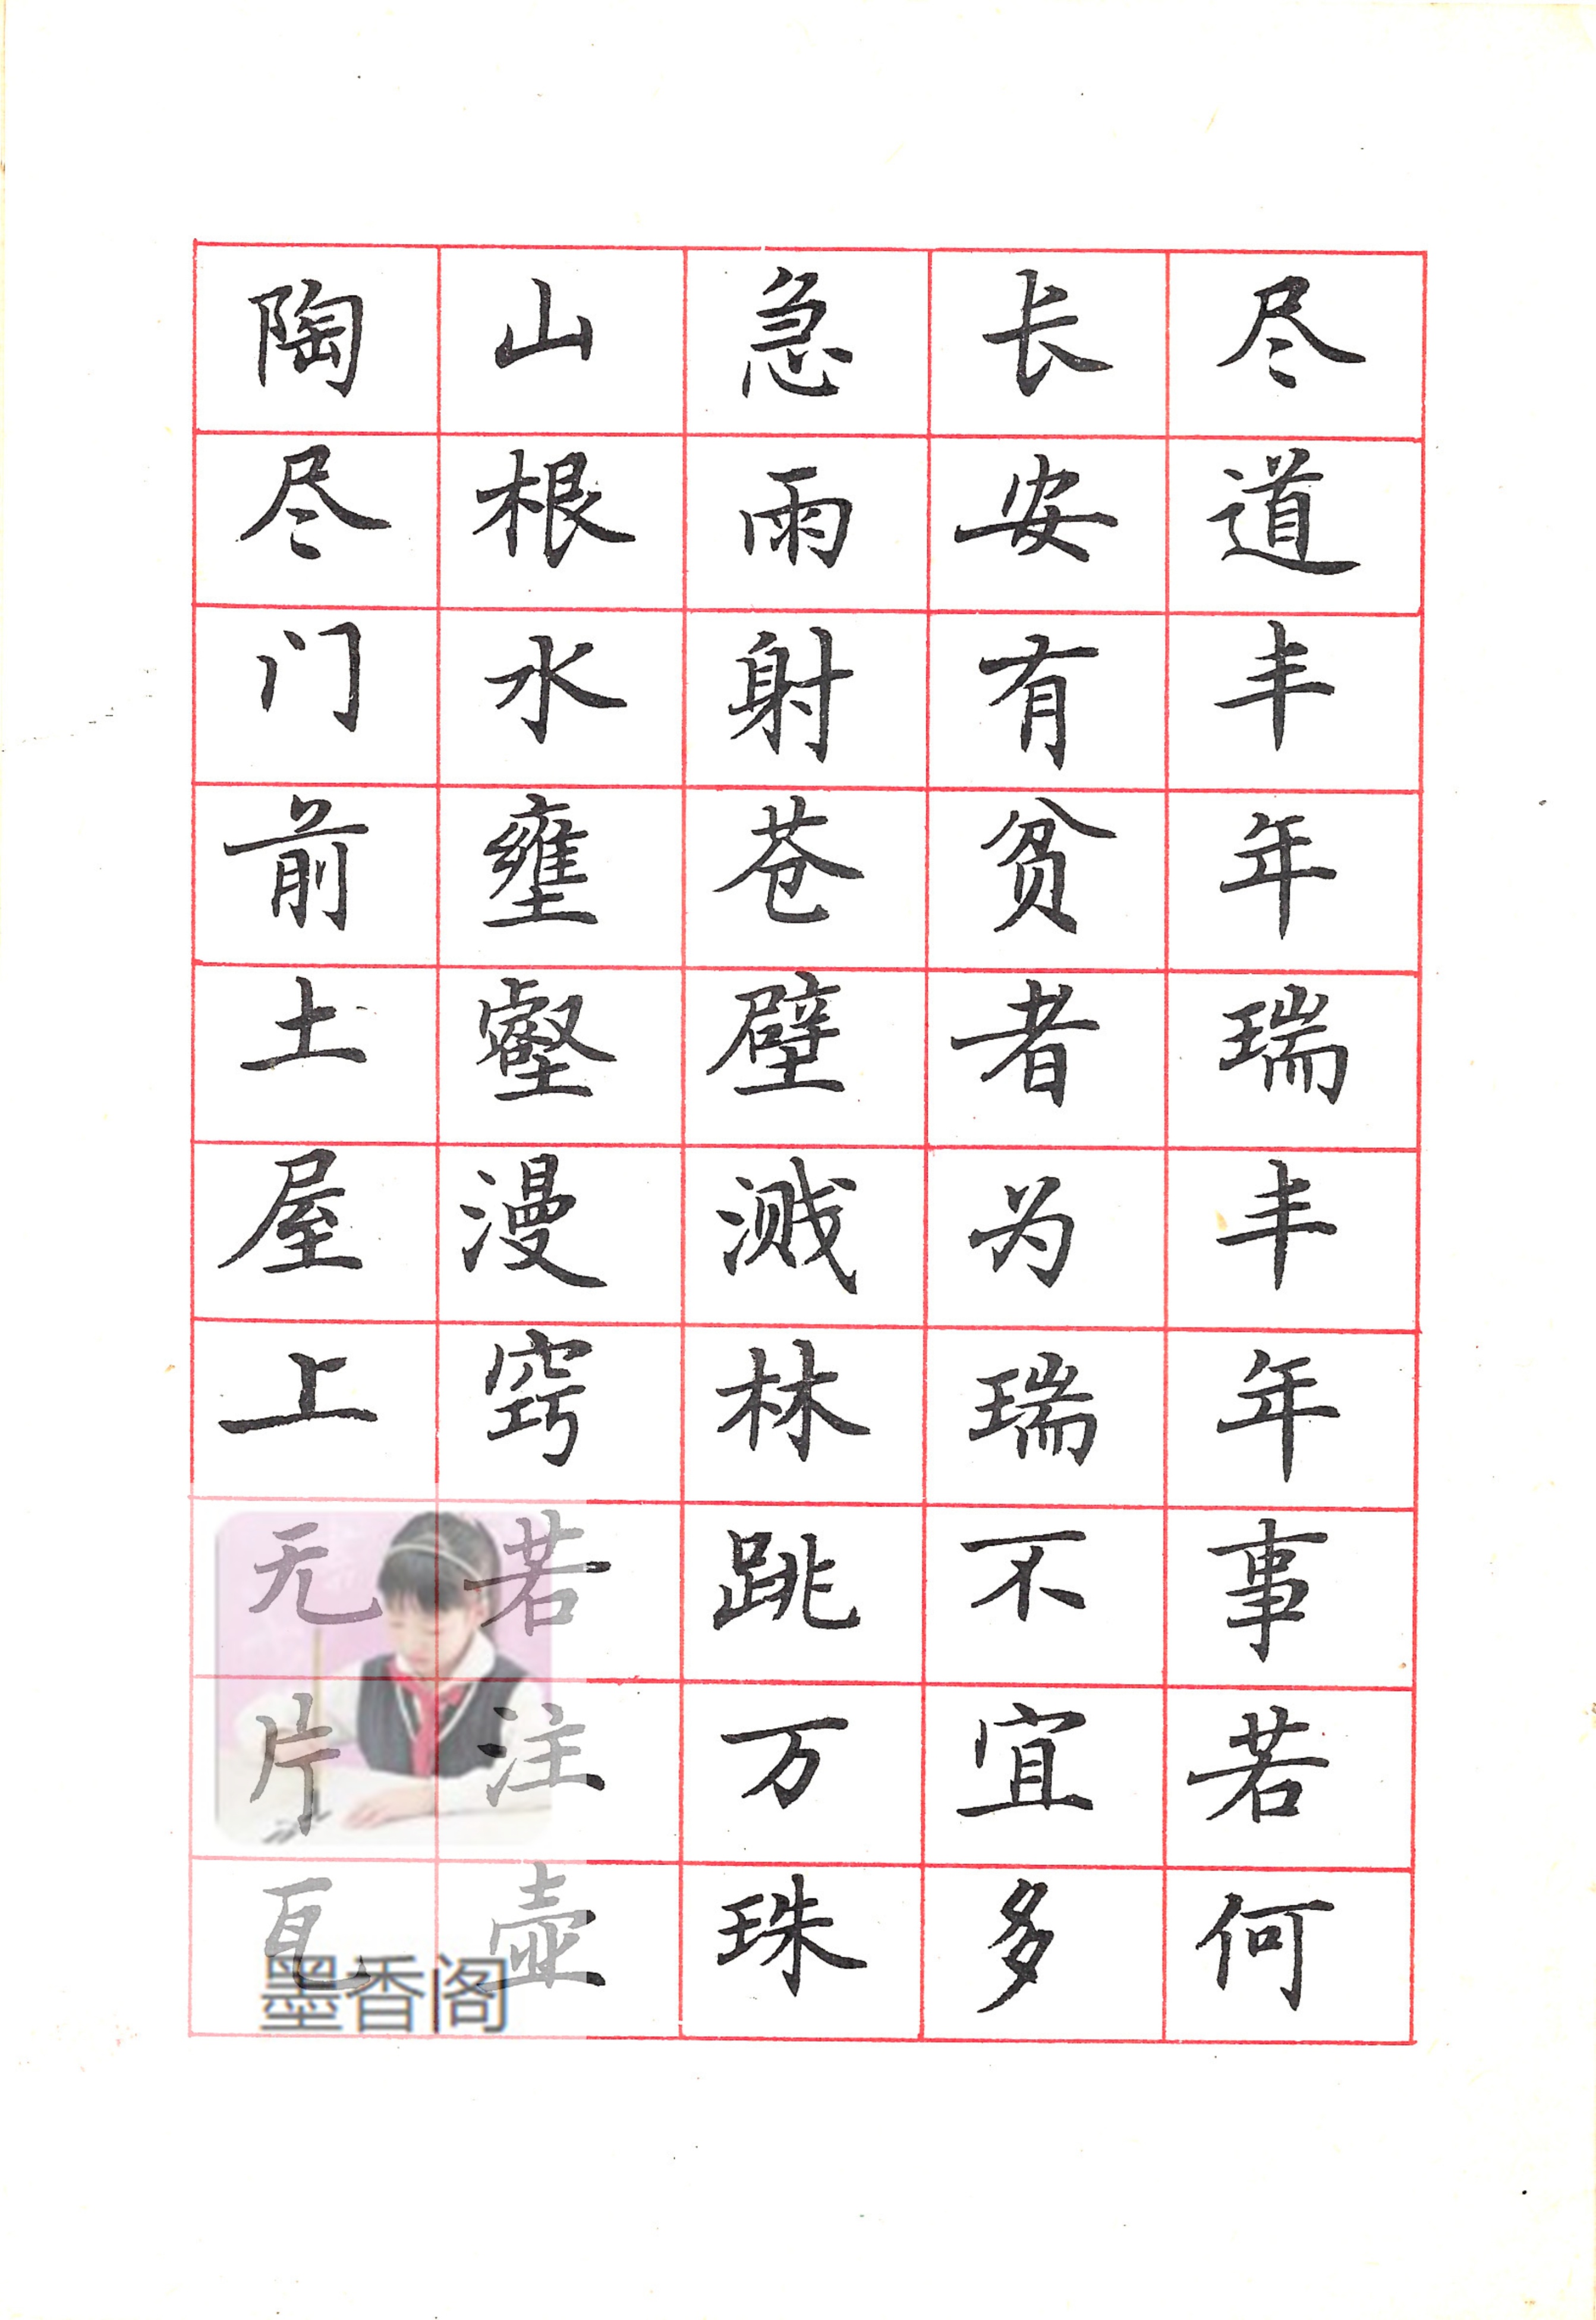 尽道丰年瑞丰年事若何
长安有贫者为瑞不宜多
急雨射苍壁溅林跳万珠
山根水壅壑漫窍若注壶
陶尽门前土屋上无片瓦
墨香阁